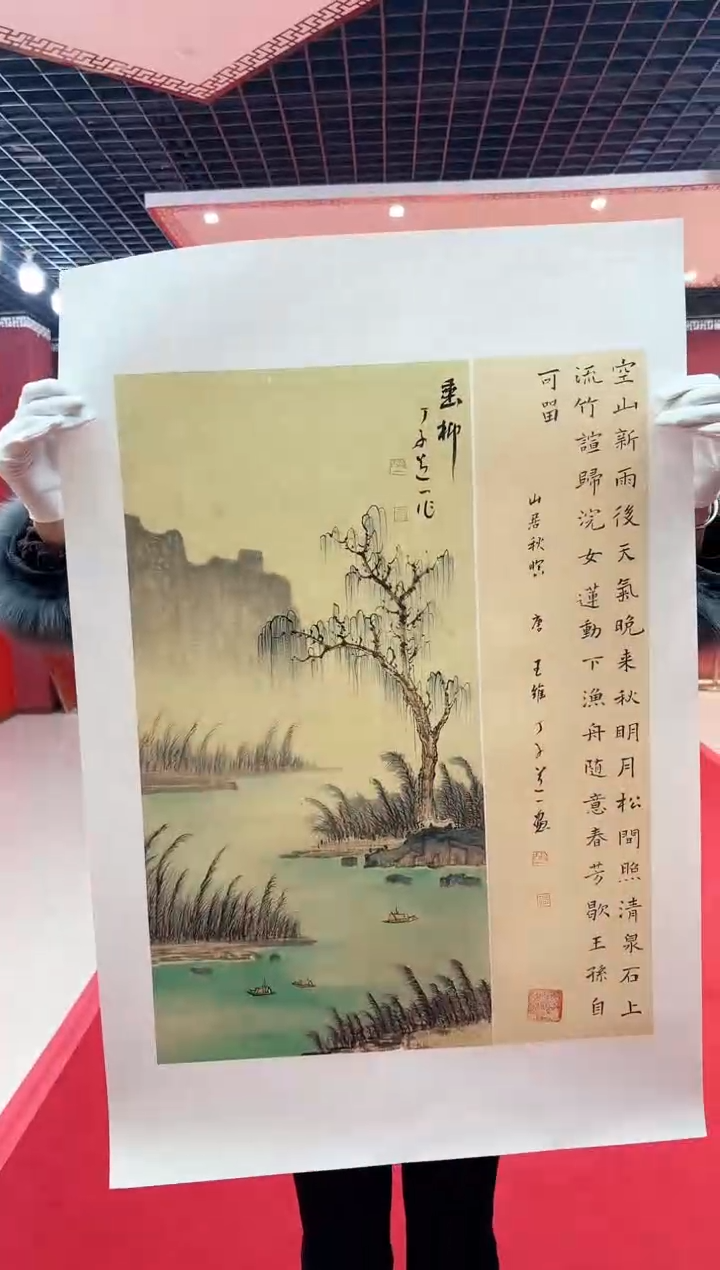 空山新雨後天氣晚来秋明月松間照清泉石上
流竹諠歸浣女蓮動下漁舟随意春芳歇王孫自
可留
山居秋暝 唐 王維
垂柳